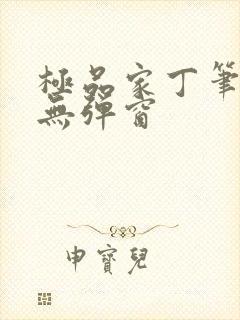 極品家丁筆
無彈窗
申寶兒